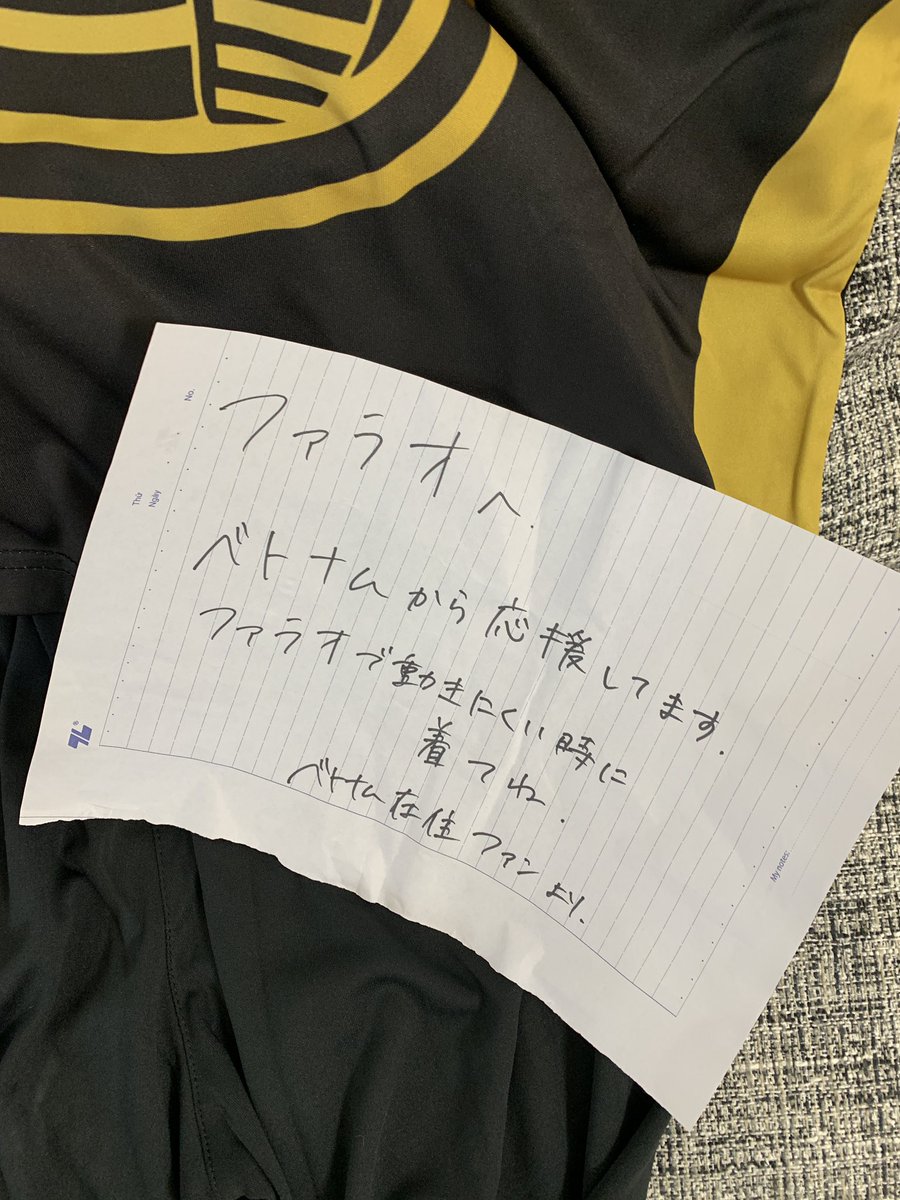 No.
Thứ
Ngày
ファラオへ.
ベトナムから応援してます.
ファラオで動きにくい時に
着てね.
ベトナム在住ファンより.
My notes: